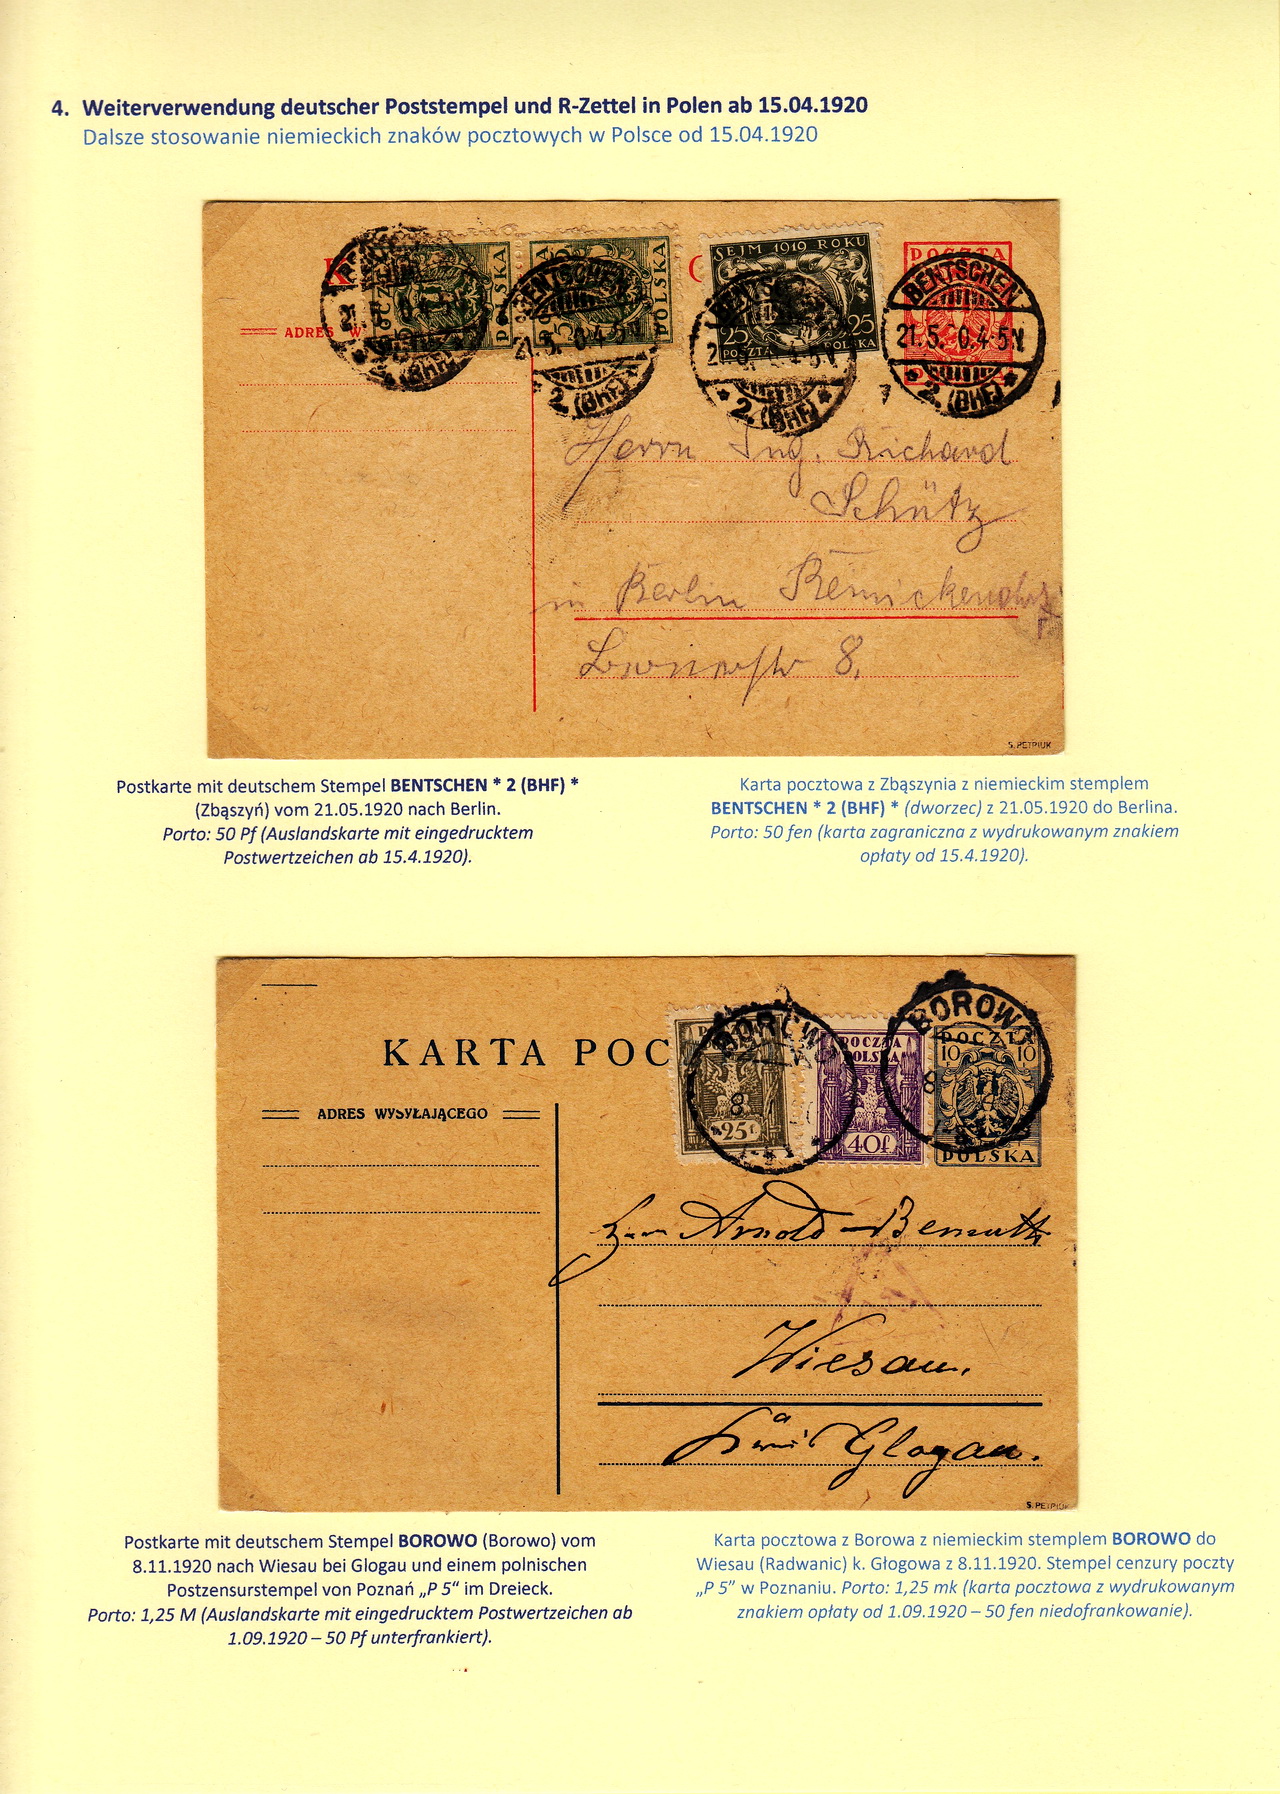 4. Weiterverwendung deutscher Poststempel und R-Zettel in Polen ab 15.04.1920
Dalsze stosowanie niemieckich znaków pocztowych w Polsce od 15.04.1920
SEJM 1919 ROKU
25 25
POCZTA POLSKA
POLSKA
POLSKA
POCZTA
BENTSCHEN
21.5. 0.4-5N
* 2. (BHF) *
BENTSCHEN
21.5. 0.4-5N
* 2. (BHF)
* 2. (BHF) *
(BHF)
ADRES W
Herrn Ing. Richard
Schütz
in Berlin
8.
S. PETPIUK
Postkarte mit deutschem Stempel BENTSCHEN * 2 (BHF) *
(Zbąszyń) vom 21.05.1920 nach Berlin.
Porto: 50 Pf (Auslandskarte mit eingedrucktem
Postwertzeichen ab 15.4.1920).
Karta pocztowa z Zbąszynia z niemieckim stemplem
BENTSCHEN * 2 (BHF) * (dworzec) z 21.05.1920 do Berlina.
Porto: 50 fen (karta zagraniczna z wydrukowanym znakiem
opłaty od 15.4.1920).
KARTA POC
ADRES WYSYŁAJĄCEGO
25f
POCZTA
POLSKA
40f.
BOROWO
BOROWO
POCZTA
10 10
POLSKA
Arnold Bemuth
Wiesau.
Glogau.
S. PETPIUK
Postkarte mit deutschem Stempel BOROWO (Borowo) vom
8.11.1920 nach Wiesau bei Glogau und einem polnischen
Postzensurstempel von Poznań „P 5“ im Dreieck.
Porto: 1,25 M (Auslandskarte mit eingedrucktem Postwertzeichen ab
1.09.1920 – 50 Pf unterfrankiert).
Karta pocztowa z Borowa z niemieckim stemplem BOROWO do
Wiesau (Radwanic) k. Głogowa z 8.11.1920. Stempel cenzury poczty
„P 5” w Poznaniu. Porto: 1,25 mk (karta pocztowa z wydrukowanym
znakiem opłaty od 1.09.1920 – 50 fen niedofrankowanie).